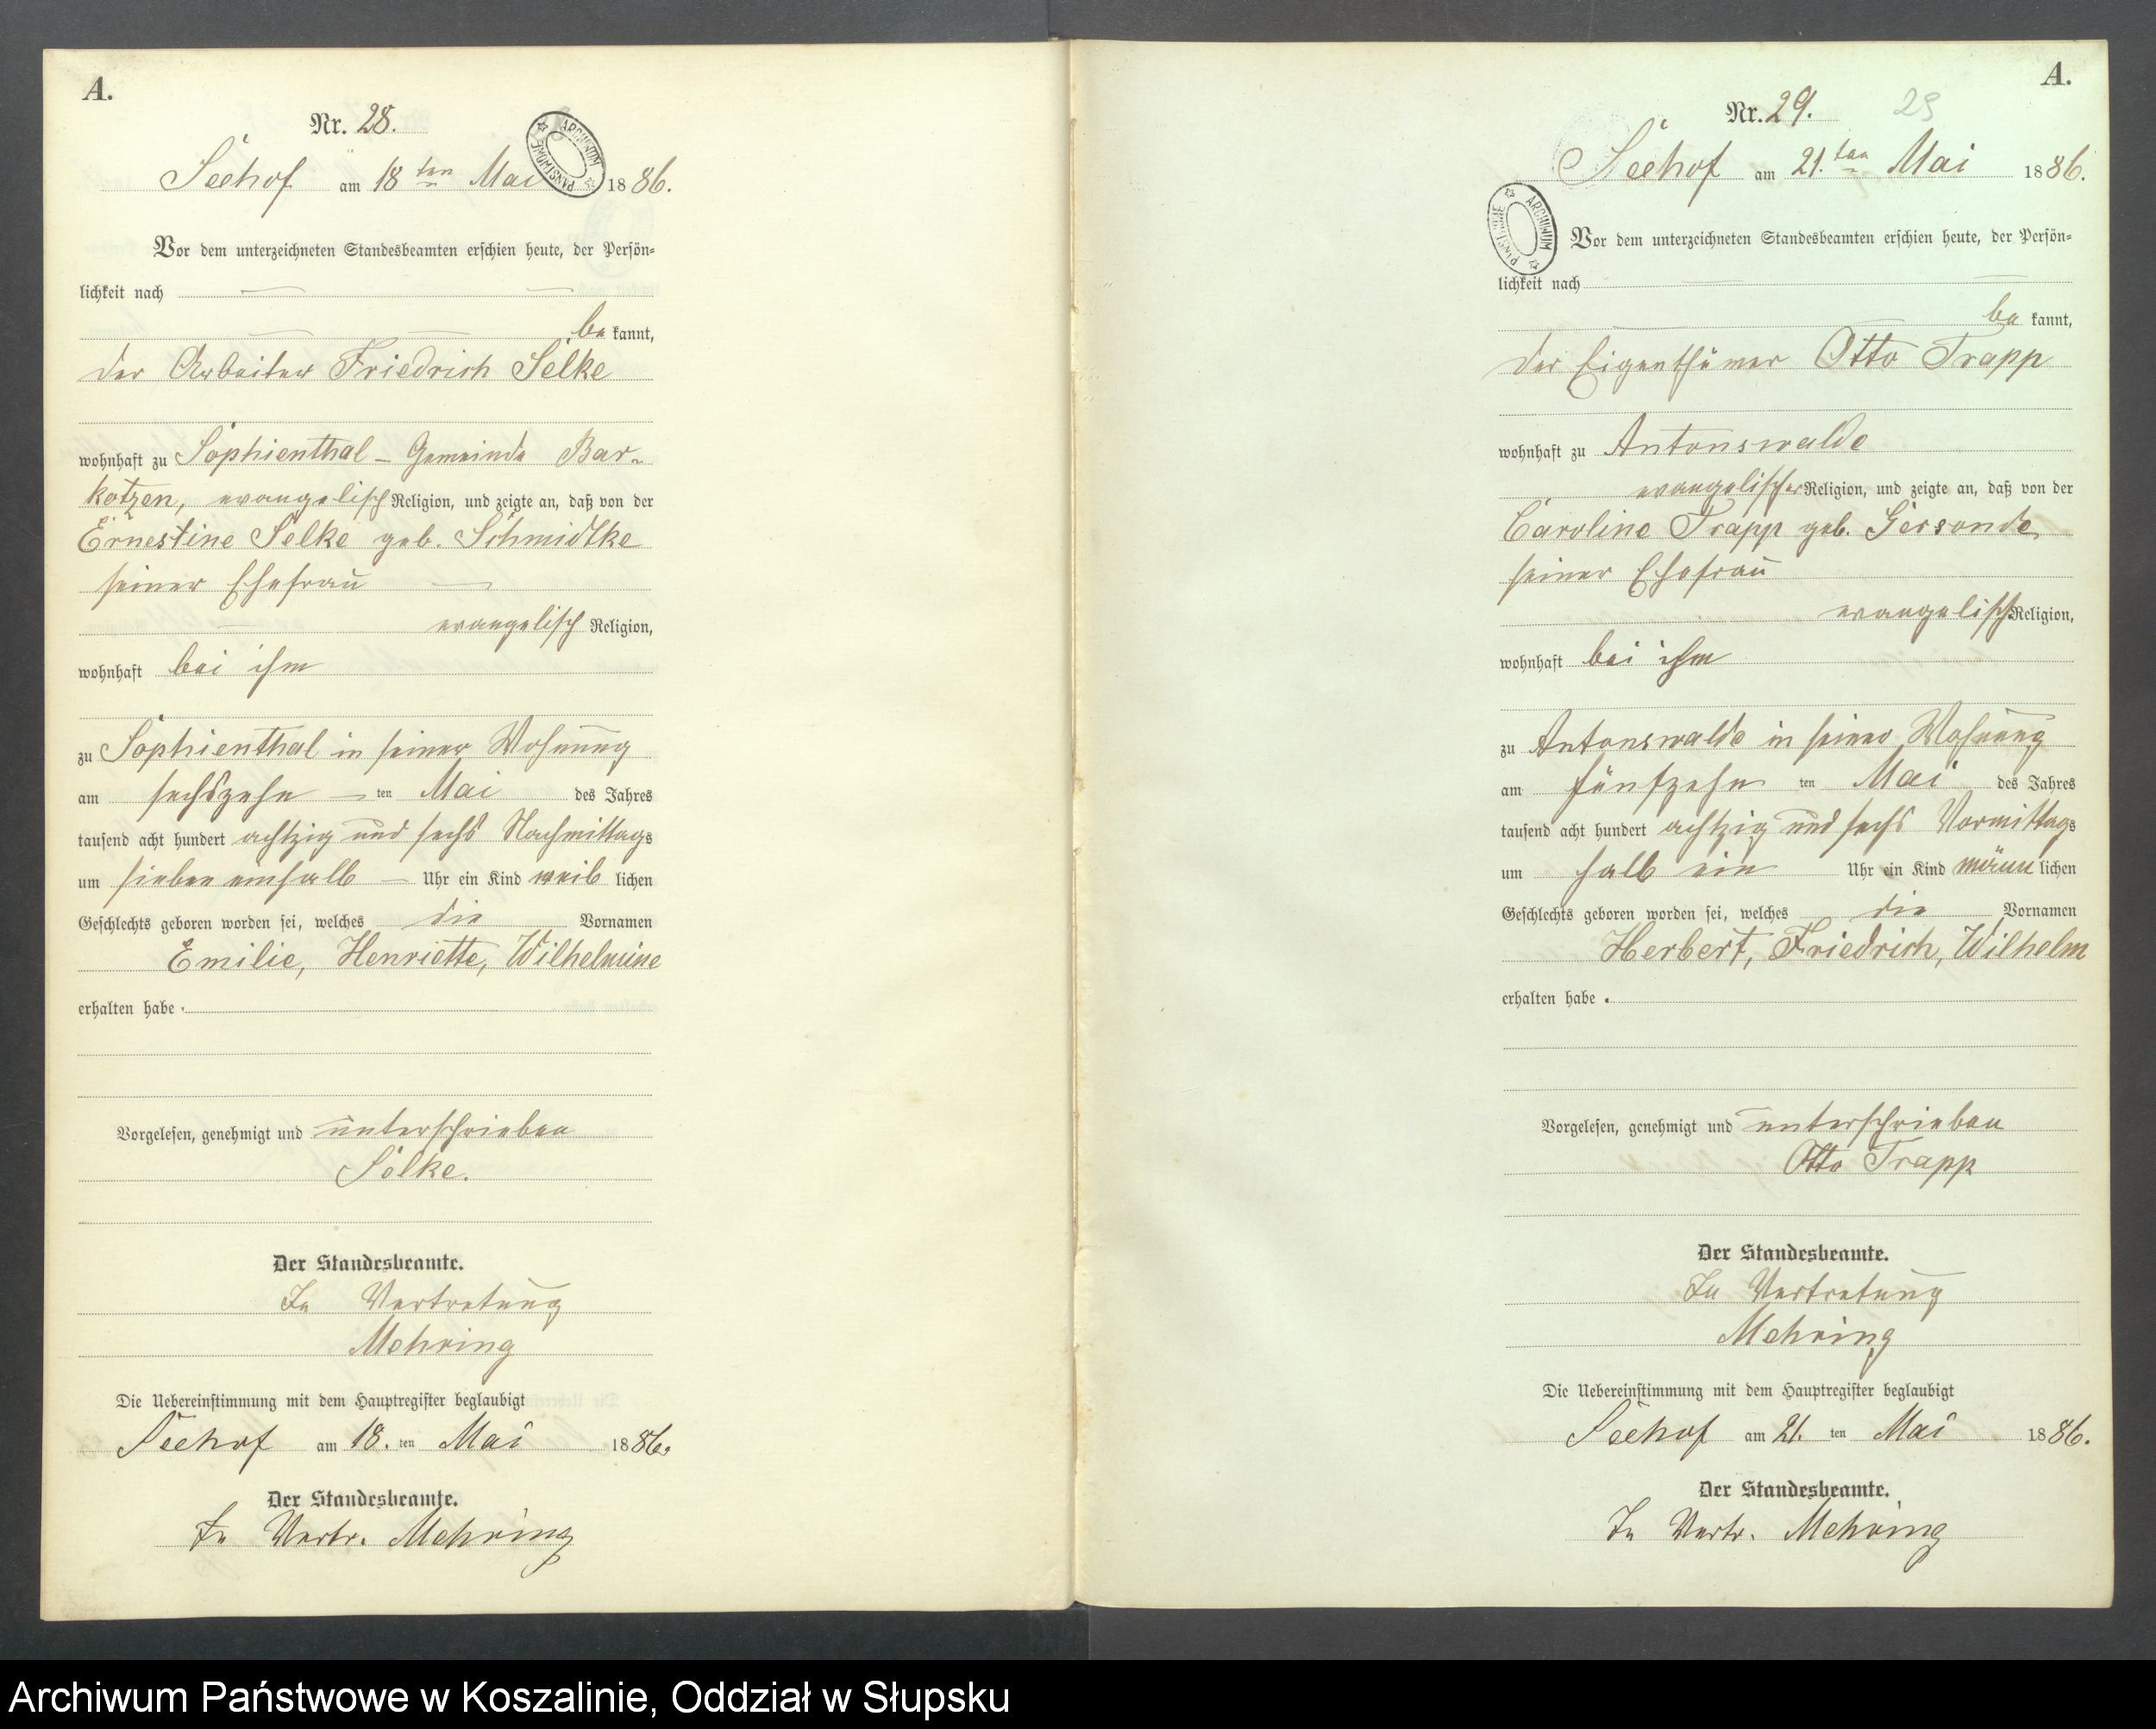 A.
Nr. 28.
ARCHIWUM PAŃSTWOWE
Seehof am 18 ten Mai 1886.
Vor dem unterzeichneten Standesbeamten erschien heute, der Persön-
lichkeit nach
be kannt,
der Arbeiter Friedrich Selke
wohnhaft zu Sophienthal - Gemeinde Bar-
kotzen, evangelisch Religion, und zeigte an, daß von der
Ernestine Selke geb. Schmidtke
seiner Ehefrau
evangelisch Religion,
wohnhaft bei ihm
zu Sophienthal in seiner Wohnung
am sechszehn ten Mai des Jahres
tausend acht hundert achtzig und sechs Nachmittags
um sieben einhalb Uhr ein Kind weib lichen
Geschlechts geboren worden sei, welches die Vornamen
Emilie, Henriette, Wilhelmine
erhalten habe.
Vorgelesen, genehmigt und unterschrieben
Selke.
Der Standesbeamte.
In Vertretung
Mehring
Die Uebereinstimmung mit dem Hauptregister beglaubigt
Seehof am 18. ten Mai 1886.
Der Standesbeamte.
In Vertr. Mehring
A.
Nr. 29. 29
Seehof am 21. ten Mai 1886.
ARCHIWUM PAŃSTWOWE
Vor dem unterzeichneten Standesbeamten erschien heute, der Persön-
lichkeit nach
be kannt,
der Eigenthümer Otto Trapp
wohnhaft zu Antonswalde
evangelischer Religion, und zeigte an, daß von der
Caroline Trapp geb. Gersonde,
seiner Ehefrau
evangelisch Religion,
wohnhaft bei ihm
zu Antonswalde in seiner Wohnung
am fünfzehn ten Mai des Jahres
tausend acht hundert achtzig und sechs Vormittags
um halb ein Uhr ein Kind männ lichen
Geschlechts geboren worden sei, welches die Vornamen
Herbert, Friedrich, Wilhelm
erhalten habe.
Vorgelesen, genehmigt und unterschrieben
Otto Trapp
Der Standesbeamte.
In Vertretung
Mehring
Die Uebereinstimmung mit dem Hauptregister beglaubigt
Seehof am 21. ten Mai 1886.
Der Standesbeamte.
In Vertr. Mehring
Archiwum Państwowe w Koszalinie, Oddział w Słupsku